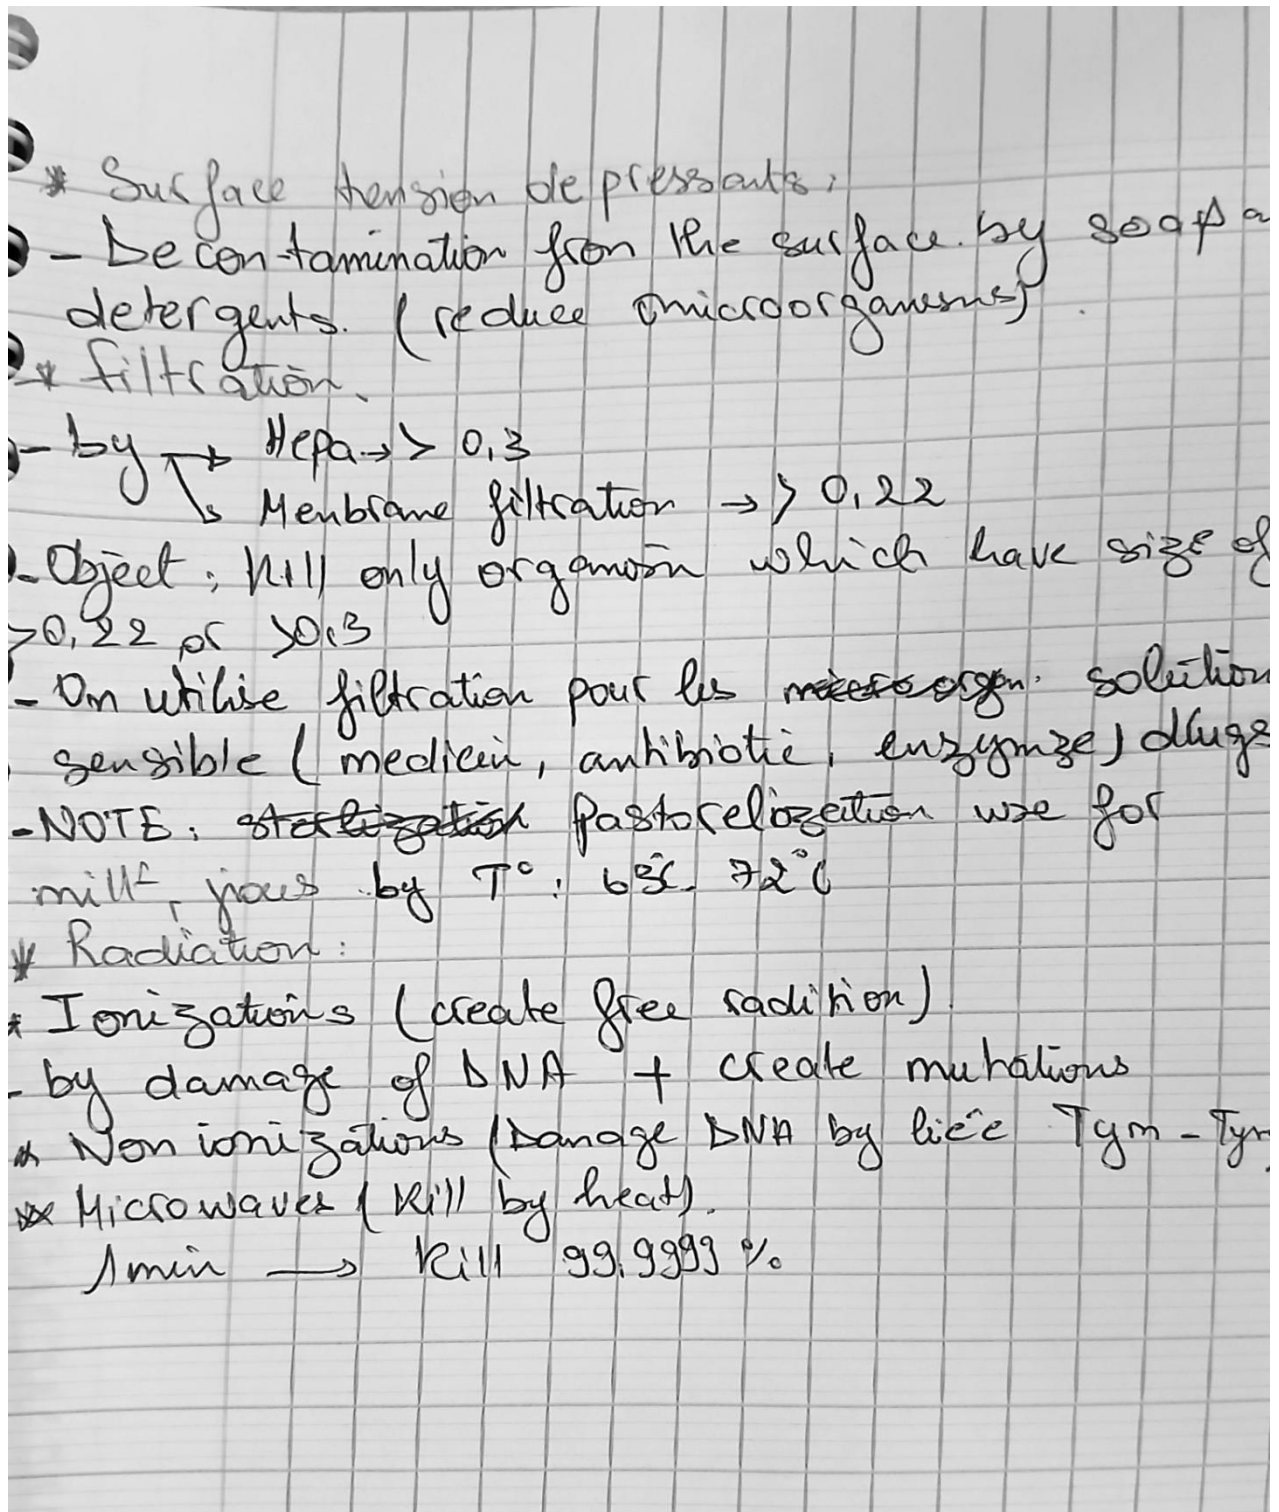 * Surface tension depressants:
- Decontamination from the surface by soap a
detergents. (reduce microorganesms)
* filtration.
- by → Hepa → > 0,3
↳ Menbrane filtration → > 0,22
- Object: Kill only organism which have size of
>0,22 or >0,3
- On utilise filtration pour les solution
sensible (medicin, antibiotic, enzymze) drugs
- NOTE: Pastorelization use for
milk, jious by T° : 63°C - 72°C
* Radiation:
* Ionizations (create free radition).
- by damage of DNA + create mutations
* Non ionizations (Damage DNA by liée Tym - Tym
* Microwaves (Kill by heat).
1 min → Kill 99,9999 %